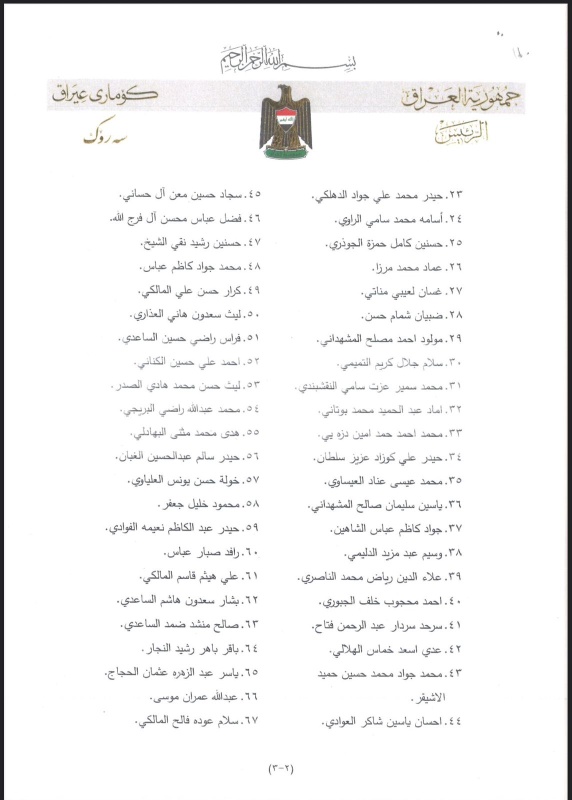 بسم الله الرحمن الرحيم
جمهورية العراق
الرئيس
كۆماری عیراق
سەرۆک
٢٣. حيدر محمد علي جواد الدهلكي.
٢٤. أسامه محمد سامي الراوي.
٢٥. حسنين كامل حمزة الجوذري.
٢٦. عماد محمد مرزا.
٢٧. غسان لعيبي مناتي.
٢٨. ضبيان شمام حسن.
٢٩. مولود احمد مصلح المشهداني.
٣٠. سلام جلال كريم التميمي.
٣١. محمد سمير عزت سامي النقشبندي.
٣٢. اماد عبد الحميد محمد بوتاني.
٣٣. محمد احمد حمد امين دزه يي.
٣٤. حيدر علي كوزاد عزيز سلطان.
٣٥. محمد عيسى عناد العيساوي.
٣٦. ياسين سليمان صالح المشهداني.
٣٧. جواد كاظم عباس الشاهين.
٣٨. وسيم عبد مزيد الدليمي.
٣٩. علاء الدين رياض محمد الناصري.
٤٠. احمد محجوب خلف الجبوري.
٤١. سرحد سردار عبد الرحمن فتاح.
٤٢. عدي اسعد خماس الهلالي.
٤٣. محمد جواد محمد حسين حميد
الاشيقر.
٤٤. احسان ياسين شاكر العوادي.
٤٥. سجاد حسين معن آل حساني.
٤٦. فضل عباس محسن آل فرج الله.
٤٧. حسنين رشيد نقي الشيخ.
٤٨. محمد جواد كاظم عباس.
٤٩. كرار حسن علي المالكي.
٥٠. ليث سعدون هاني العذاري.
٥١. فراس راضي حسين الساعدي.
٥٢. احمد علي حسين الكناني.
٥٣. ليث حسن محمد هادي الصدر.
٥٤. محمد عبدالله راضي البريجي.
٥٥. هدى محمد مثنى البهادلي.
٥٦. حيدر سالم عبدالحسين الغبان.
٥٧. خولة حسن يونس العلياوي.
٥٨. محمود خليل جعفر.
٥٩. حيدر عبد الكاظم نعيمه الفوادي.
٦٠. رافد صبار عباس.
٦١. علي هيثم قاسم المالكي.
٦٢. بشار سعدون هاشم الساعدي.
٦٣. صالح منشد ضمد الساعدي.
٦٤. باقر باهر رشيد النجار.
٦٥. ياسر عبد الزهره عثمان الحجاج.
٦٦. عبدالله عمران موسى.
٦٧. سلام عوده فالح المالكي.
(٢-٣)